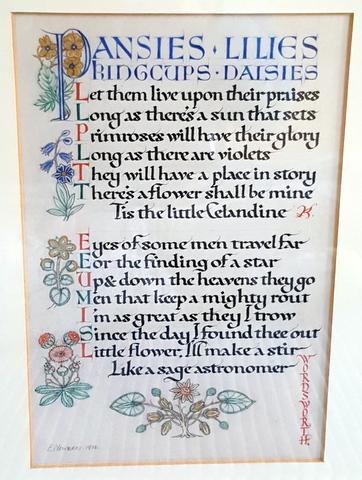 PANSIES · LILIES
KINGCUPS · DAISIES
Let them live upon their praises
Long as there's a sun that sets
Primroses will have their glory
Long as there are violets
They will have a place in story
There's a flower shall be mine
'Tis the little Celandine
Eyes of some men travel far
For the finding of a star
Up & down the heavens they go
Men that keep a mighty rout
I'm as great as they I trow
Since the day I found thee out
Little flower, I'll make a stir
Like a sage astronomer
WORDSWORTH